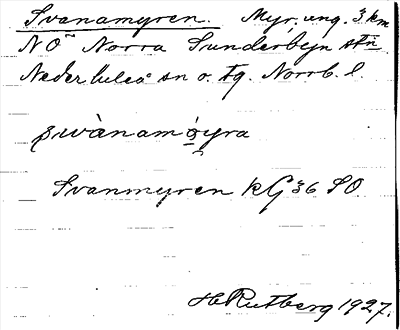 Svanamyren. Myr, ung. 3 km
NO Norra Sunderbyn stn
Nederluleå sn o. tg. Norrb. l.
svànamøyra
Svanmyren kG 36 SO.
H Rutberg 1927.